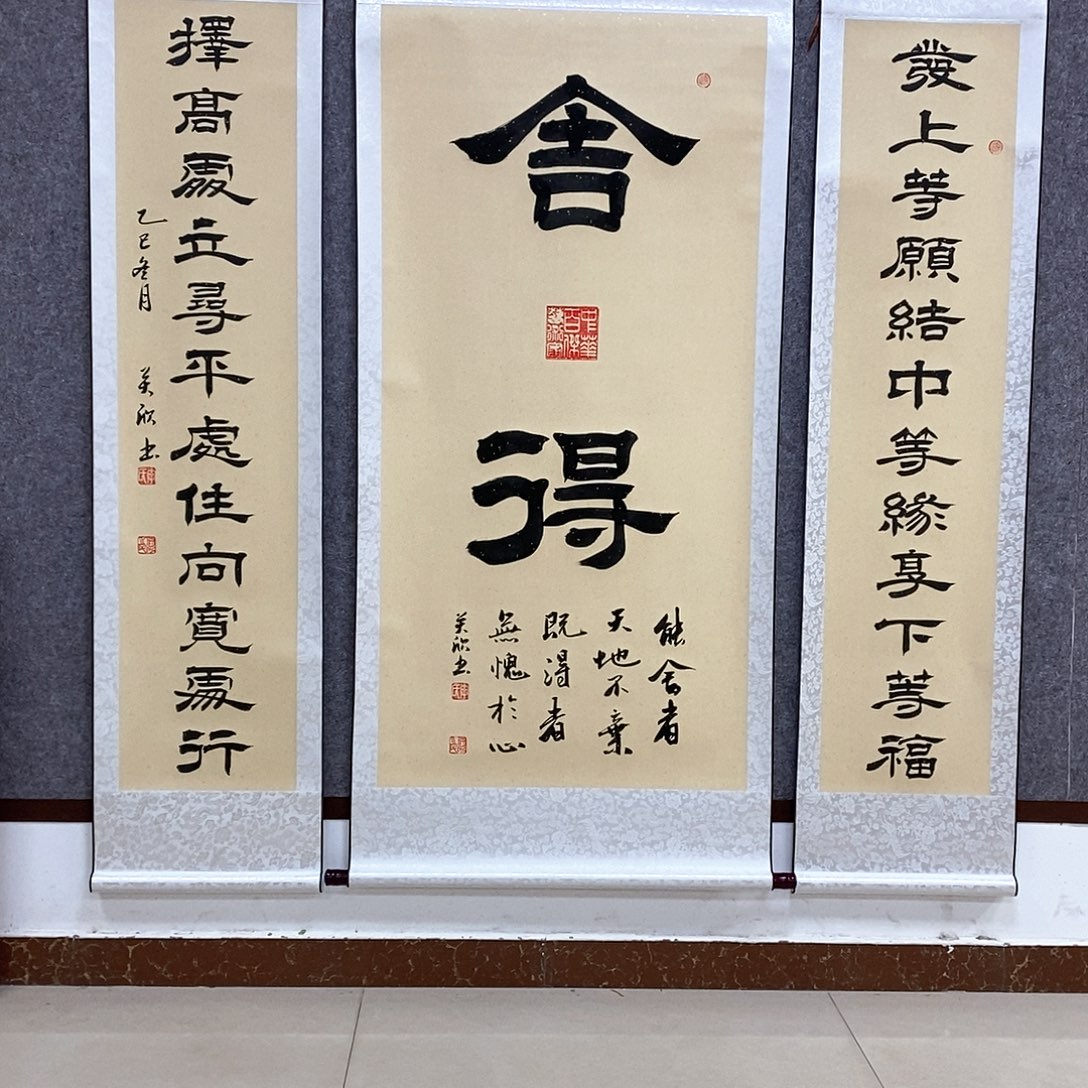 發上等願結中等緣享下等福
舍得
中華百傑藝術家
能舍者
天地不棄
既得者
無愧於心
美欣書
擇高處立尋平處住向寬處行
乙巳冬月 美欣書